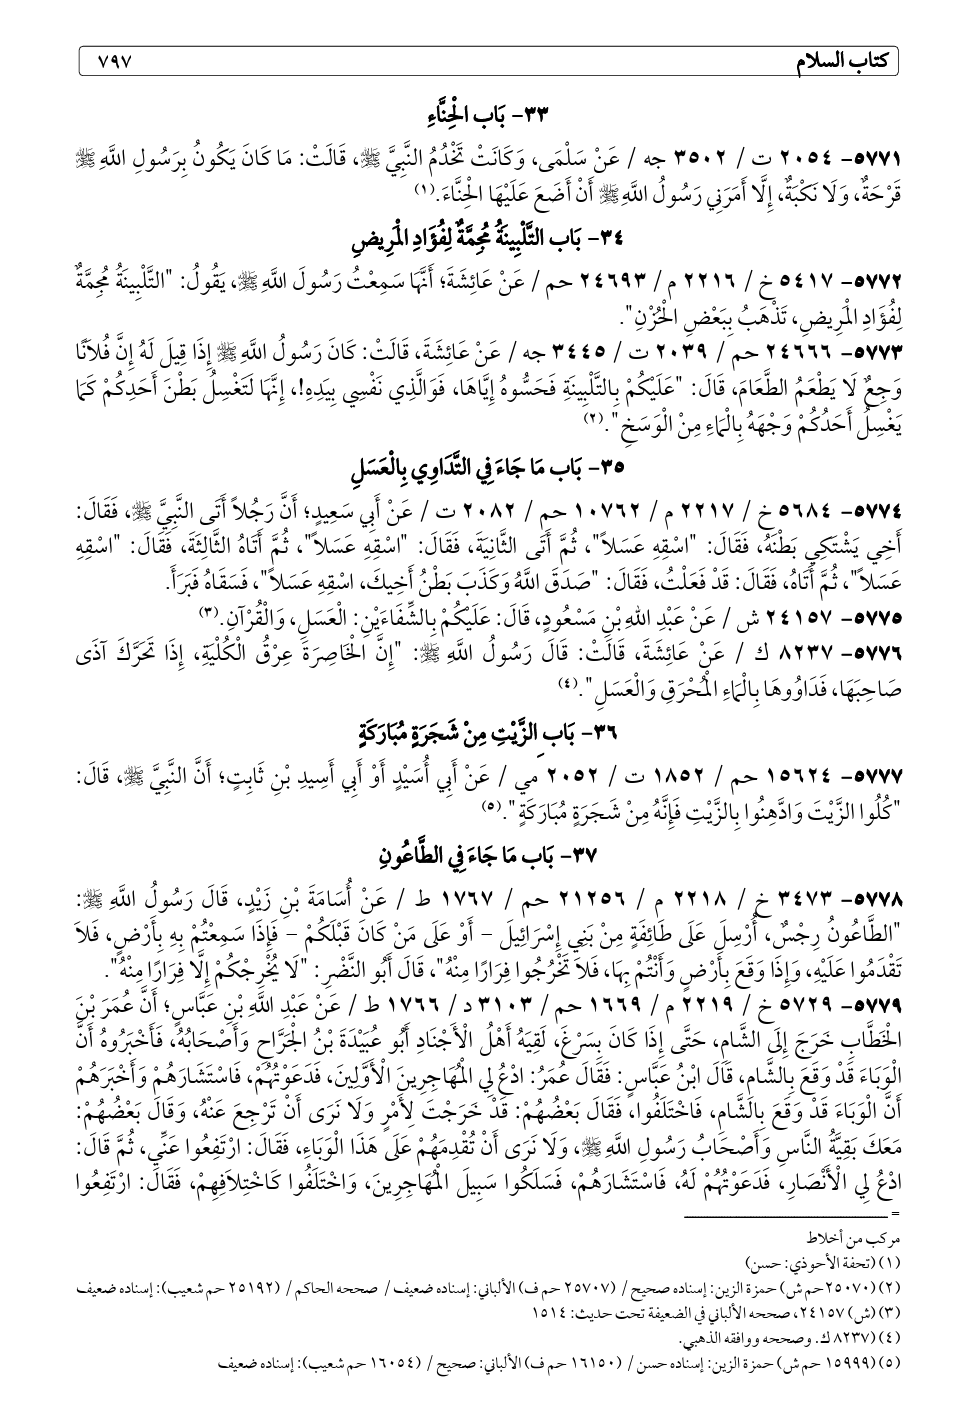 كتاب السلام ٧٩٧
٣٣- بَاب الْحِنَّاءِ
٥٧٧١- ٢٠٥٤ ت / ٣٥٠٢ جه / عَنْ سَلْمَى، وَكَانَتْ تَخْدُمُ النَّبِيَّ ﷺ، قَالَتْ: مَا كَانَ يَكُونُ بِرَسُولِ اللَّهِ ﷺ
قَرْحَةٌ، وَلَا نَكْبَةٌ، إِلَّا أَمَرَنِي رَسُولُ اللَّهِ ﷺ أَنْ أَضَعَ عَلَيْهَا الْحِنَّاءَ.(١)
٣٤- بَاب التَّلْبِينَةُ مُجِمَّةٌ لِفُؤَادِ الْمَرِيضِ
٥٧٧٢- ٥٤١٧ خ / ٢٢١٦ م / ٢٤٦٩٣ حم / عَنْ عَائِشَةَ؛ أَنَّهَا سَمِعْتُ رَسُولَ اللَّهِ ﷺ، يَقُولُ: "التَّلْبِينَةُ مُجِمَّةٌ
لِفُؤَادِ الْمَرِيضِ، تَذْهَبُ بِبَعْضِ الْحُزْنِ".
٥٧٧٣- ٢٤٦٦٦ حم / ٢٠٣٩ ت / ٣٤٤٥ جه / عَنْ عَائِشَةَ، قَالَتْ: كَانَ رَسُولُ اللَّهِ ﷺ إِذَا قِيلَ لَهُ إِنَّ فُلَانًا
وَجِعٌ لَا يَطْعَمُ الطَّعَامَ، قَالَ: "عَلَيْكُمْ بِالتَّلْبِينَةِ فَحَسُّوهُ إِيَّاهَا، فَوَالَّذِي نَفْسِي بِيَدِهِ!، إِنَّهَا لَتَغْسِلُ بَطْنَ أَحَدِكُمْ كَمَا
يَغْسِلُ أَحَدُكُمْ وَجْهَهُ بِالْمَاءِ مِنْ الْوَسَخِ".(٢)
٣٥- بَاب مَا جَاءَ فِي التَّدَاوِي بِالْعَسَلِ
٥٧٧٤- ٥٦٨٤ خ / ٢٢١٧ م / ١٠٧٦٢ حم / ٢٠٨٢ ت / عَنْ أَبِي سَعِيدٍ؛ أَنَّ رَجُلاً أَتَى النَّبِيَّ ﷺ، فَقَالَ:
أَخِي يَشْتَكِي بَطْنَهُ، فَقَالَ: "اسْقِهِ عَسَلاً"، ثُمَّ أَتَى الثَّانِيَةَ، فَقَالَ: "اسْقِهِ عَسَلاً"، ثُمَّ أَتَاهُ الثَّالِثَةَ، فَقَالَ: "اسْقِهِ
عَسَلاً"، ثُمَّ أَتَاهُ، فَقَالَ: قَدْ فَعَلْتُ، فَقَالَ: "صَدَقَ اللَّهُ وَكَذَبَ بَطْنُ أَخِيكَ، اسْقِهِ عَسَلاً"، فَسَقَاهُ فَبَرَأَ.
٥٧٧٥- ٢٤١٥٧ ش / عَنْ عَبْدِ اللهِ بْنِ مَسْعُودٍ، قَالَ: عَلَيْكُمْ بِالشِّفَاءَيْنِ: الْعَسَلِ، وَالْقُرْآنِ.(٣)
٥٧٧٦- ٨٢٣٧ ك / عَنْ عَائِشَةَ، قَالَتْ: قَالَ رَسُولُ اللَّهِ ﷺ: "إِنَّ الْخَاصِرَةَ عِرْقُ الْكُلْيَةِ، إِذَا تَحَرَّكَ آذَى
صَاحِبَهَا، فَدَاوُوهَا بِالْمَاءِ الْمُحْرَقِ وَالْعَسَلِ".(٤)
٣٦- بَابِ الزَّيْتِ مِنْ شَجَرَةٍ مُبَارَكَةٍ
٥٧٧٧- ١٥٦٢٤ حم / ١٨٥٢ ت / ٢٠٥٢ مي / عَنْ أَبِي أُسَيْدٍ أَوْ أَبِي أَسِيدِ بْنِ ثَابِتٍ؛ أَنَّ النَّبِيَّ ﷺ، قَالَ:
"كُلُوا الزَّيْتَ وَادَّهِنُوا بِالزَّيْتِ فَإِنَّهُ مِنْ شَجَرَةٍ مُبَارَكَةٍ".(٥)
٣٧- بَاب مَا جَاءَ فِي الطَّاعُونِ
٥٧٧٨- ٣٤٧٣ خ / ٢٢١٨ م / ٢١٢٥٦ حم / ١٧٦٧ ط / عَنْ أُسَامَةَ بْنِ زَيْدٍ، قَالَ رَسُولُ اللَّهِ ﷺ:
"الطَّاعُونُ رِجْسٌ، أُرْسِلَ عَلَى طَائِفَةٍ مِنْ بَنِي إِسْرَائِيلَ – أَوْ عَلَى مَنْ كَانَ قَبْلَكُمْ – فَإِذَا سَمِعْتُمْ بِهِ بِأَرْضٍ، فَلاَ
تَقْدَمُوا عَلَيْهِ، وَإِذَا وَقَعَ بِأَرْضٍ وَأَنْتُمْ بِهَا، فَلاَ تَخْرُجُوا فِرَارًا مِنْهُ"، قَالَ أَبُو النَّضْرِ: "لَا يُخْرِجْكُمْ إِلَّا فِرَارًا مِنْهُ".
٥٧٧٩- ٥٧٢٩ خ / ٢٢١٩ م / ١٦٦٩ حم / ٣١٠٣ د / ١٧٦٦ ط / عَنْ عَبْدِ اللَّهِ بْنِ عَبَّاسٍ؛ أَنَّ عُمَرَ بْنَ
الْخَطَّابِ خَرَجَ إِلَى الشَّامِ، حَتَّى إِذَا كَانَ بِسَرْغَ، لَقِيَهُ أَهْلُ الْأَجْنَادِ أَبُو عُبَيْدَةَ بْنُ الْجَرَّاحِ وَأَصْحَابُهُ، فَأَخْبَرُوهُ أَنَّ
الْوَبَاءَ قَدْ وَقَعَ بِالشَّامِ، قَالَ ابْنُ عَبَّاسٍ: فَقَالَ عُمَرُ: ادْعُ لِي الْمُهَاجِرِينَ الْأَوَّلِينَ، فَدَعَوْتُهُمْ، فَاسْتَشَارَهُمْ وَأَخْبَرَهُمْ
أَنَّ الْوَبَاءَ قَدْ وَقَعَ بِالشَّامِ، فَاخْتَلَفُوا، فَقَالَ بَعْضُهُمْ: قَدْ خَرَجْتَ لِأَمْرٍ وَلَا نَرَى أَنْ تَرْجِعَ عَنْهُ، وَقَالَ بَعْضُهُمْ:
مَعَكَ بَقِيَّةُ النَّاسِ وَأَصْحَابُ رَسُولِ اللَّهِ ﷺ، وَلَا نَرَى أَنْ تُقْدِمَهُمْ عَلَى هَذَا الْوَبَاءِ، فَقَالَ: ارْتَفِعُوا عَنِّي، ثُمَّ قَالَ:
ادْعُ لِي الْأَنْصَارِ، فَدَعَوْتُهُمْ لَهُ، فَاسْتَشَارَهُمْ، فَسَلَكُوا سَبِيلَ الْمُهَاجِرِينَ، وَاخْتَلَفُوا كَاخْتِلَافِهِمْ، فَقَالَ: ارْتَفِعُوا
=
مركب من أخلاط
(١) (تحفة الأحوذي: حسن)
(٢) (٢٥٠٧٠حم ش) حمزة الزين: إسناده صحيح / (٢٥٧٠٧ حم ف) الألباني: إسناده ضعيف / صححه الحاكم / (٢٥١٩٢ حم شعيب): إسناده ضعيف
(٣) (ش) ٢٤١٥٧، صححه الألباني في الضعيفة تحت حديث: ١٥١٤
(٤) (٨٢٣٧ ك. وصححه ووافقه الذهبي.
(٥) (١٥٩٩٩ حم ش) حمزة الزين: إسناده حسن / (١٦١٥٠ حم ف) الألباني: صحيح / (١٦٠٥٤ حم شعيب): إسناده ضعيف